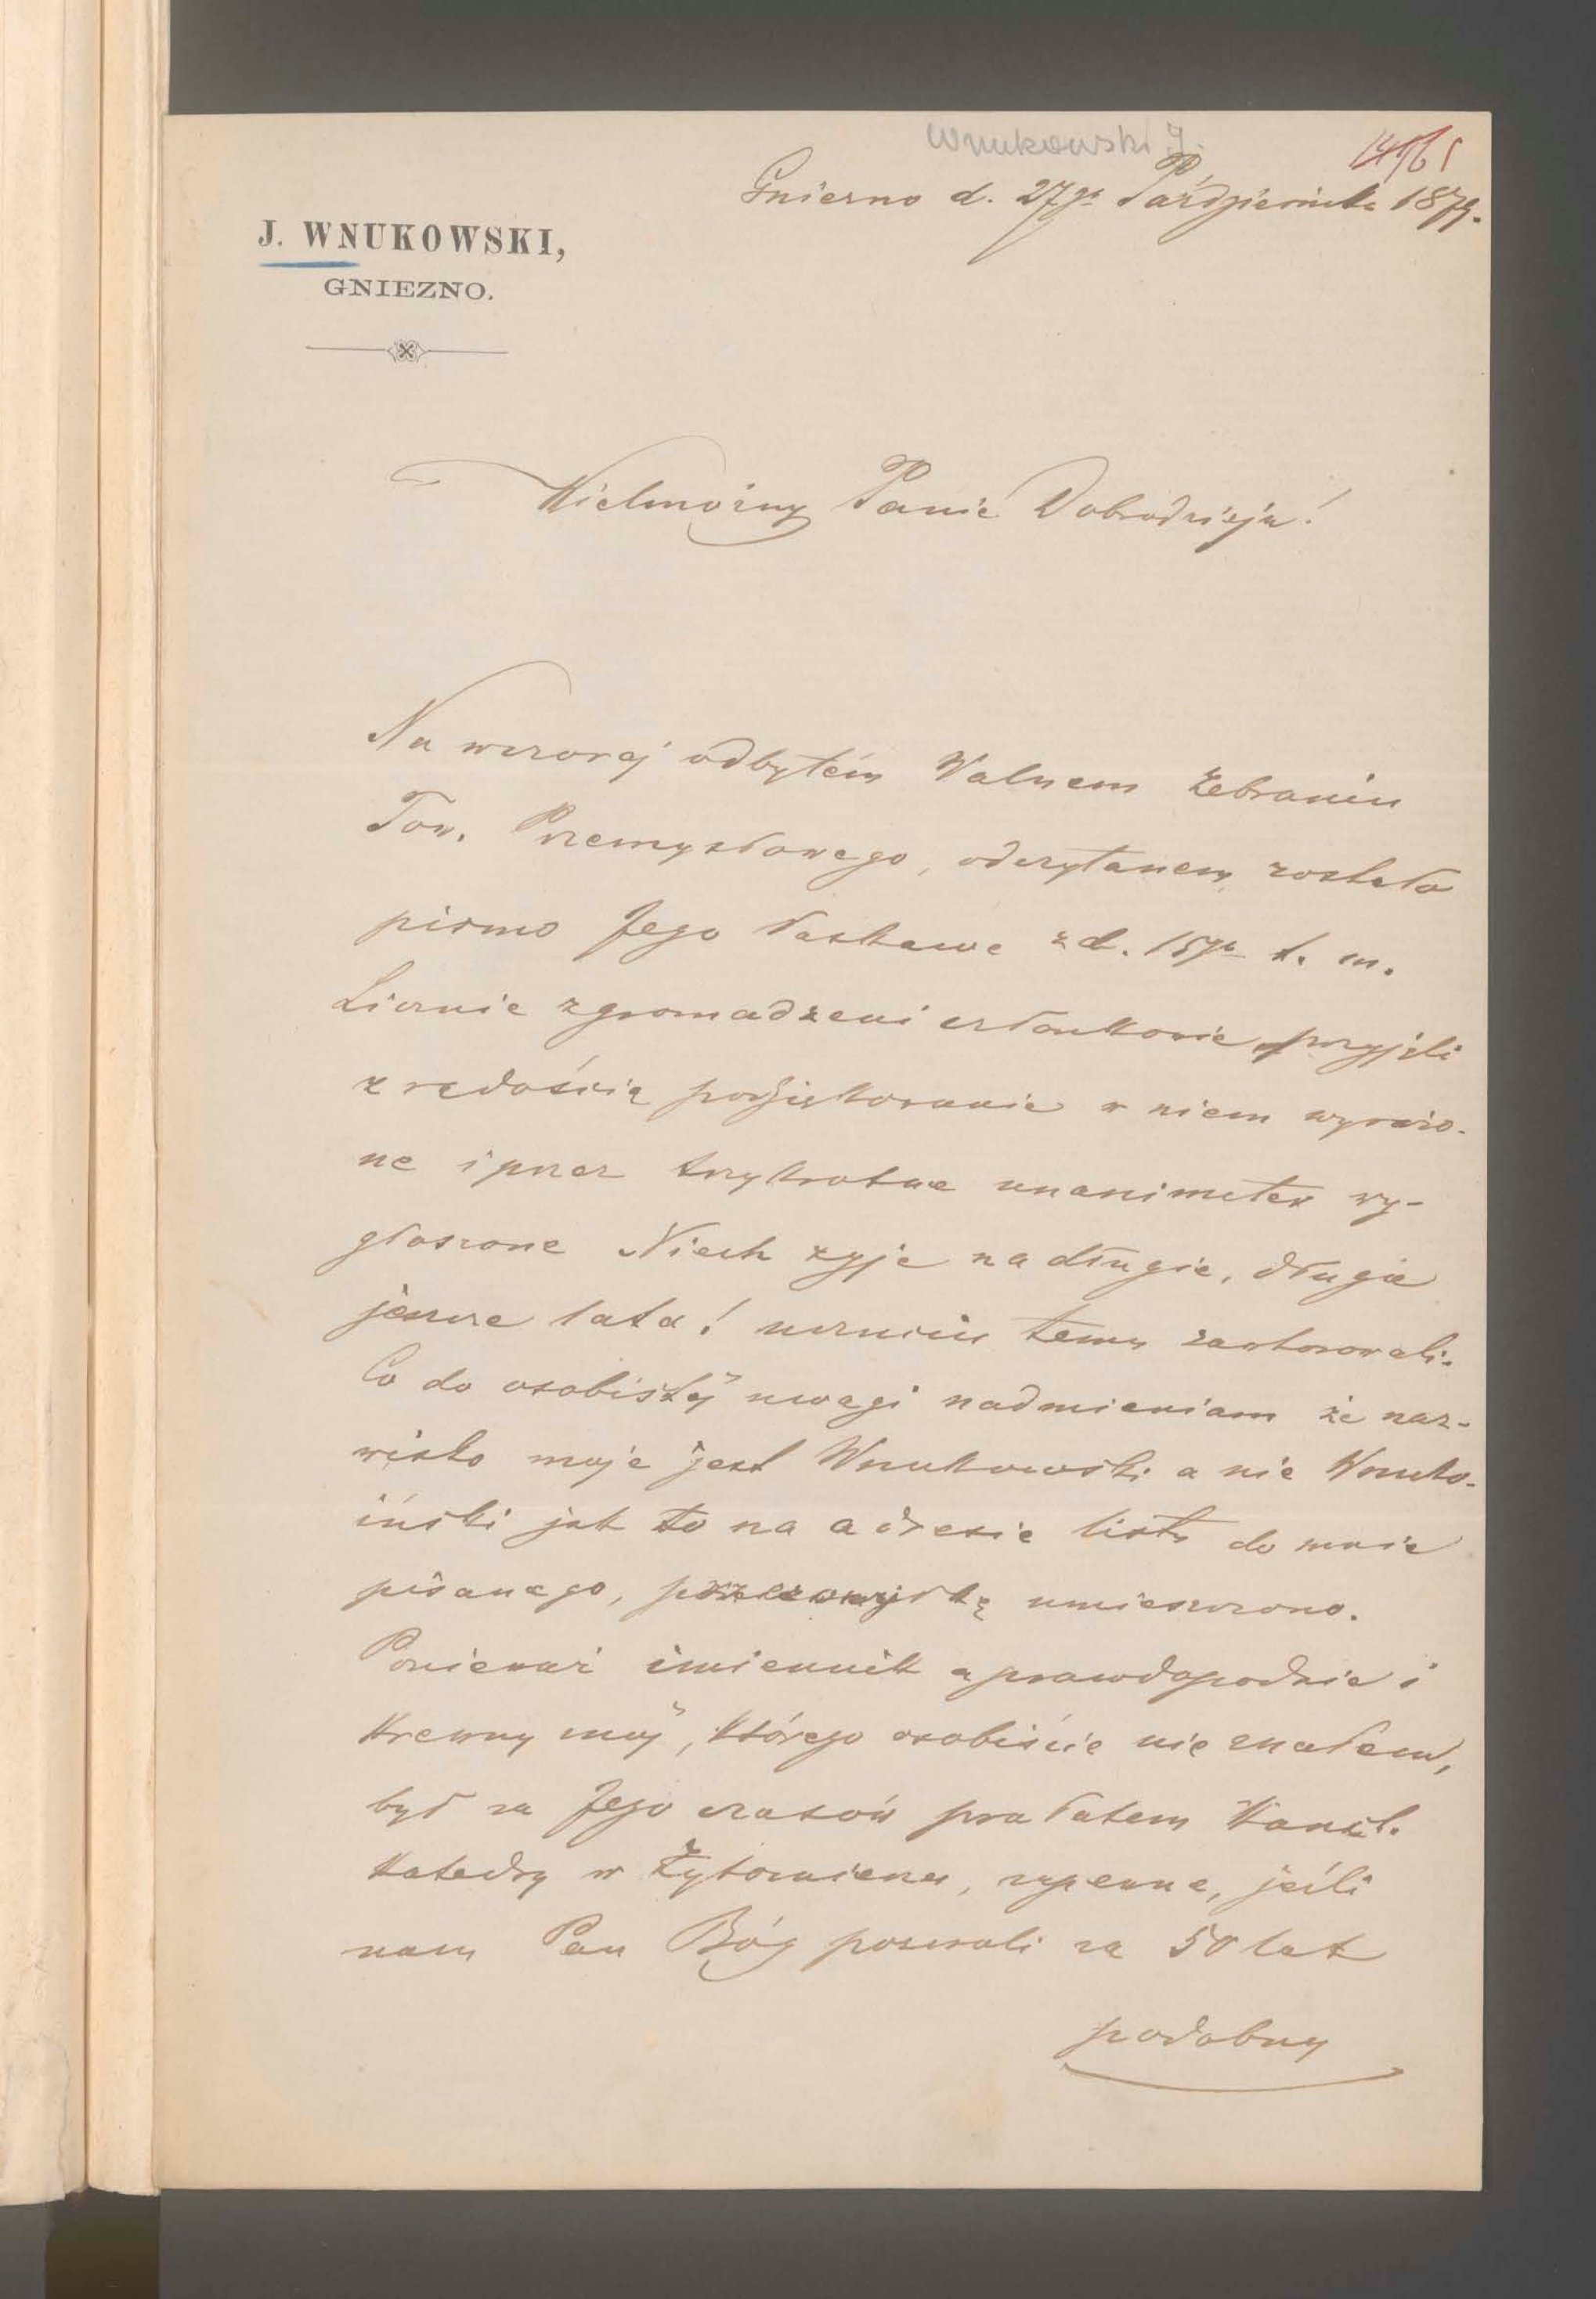 Wnukowski J.
Gniezno d. 27go Października 1879.
J. WNUKOWSKI,
GNIEZNO.
Wielmożny Panie Dobrodzieju!
Na wczoraj odbytém Walnem Zebraniu
Tow. Przemysłowego, odczytanem zostało
pismo Jego łaskawe z d. 15go b. m.
Licznie zgromadzeni członkowie przyjęli
z radością podziękowanie w niem wyrażo-
ne i przez trzykrotne unanimiter wy-
głoszone Niech żyje na długie, długie
jeszcze lata! uczuciu temu zawtorowali.
Co do osobistéj uwagi nadmieniam że naz-
wisko moje jest Wnukowski a nie Wnuko-
iński jak to na adresie listu do mnie
pisanego, umieszczono.
Ponieważ imiennik a prawdopodnie i
krewny mój, którego osobiście nie znałem,
był za Jego czasów prałatem
Katedry w Żytomierzu, zapewne, jeśli
nam Pan Bóg pozwoli za 50 lat
podobny